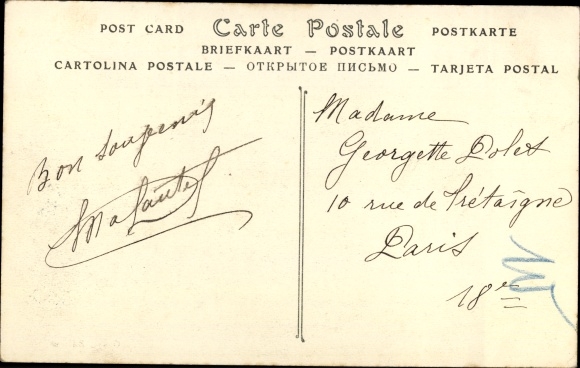 POST CARD Carte Postale POSTKARTE
BRIEFKAART — POSTKAART
CARTOLINA POSTALE — ОТКРЫТОЕ ПИСЬМО — TARJETA POSTAL
Bon Souvenir
Madame
Georgette Dolet
10 rue de Trétaigne
Paris
18e